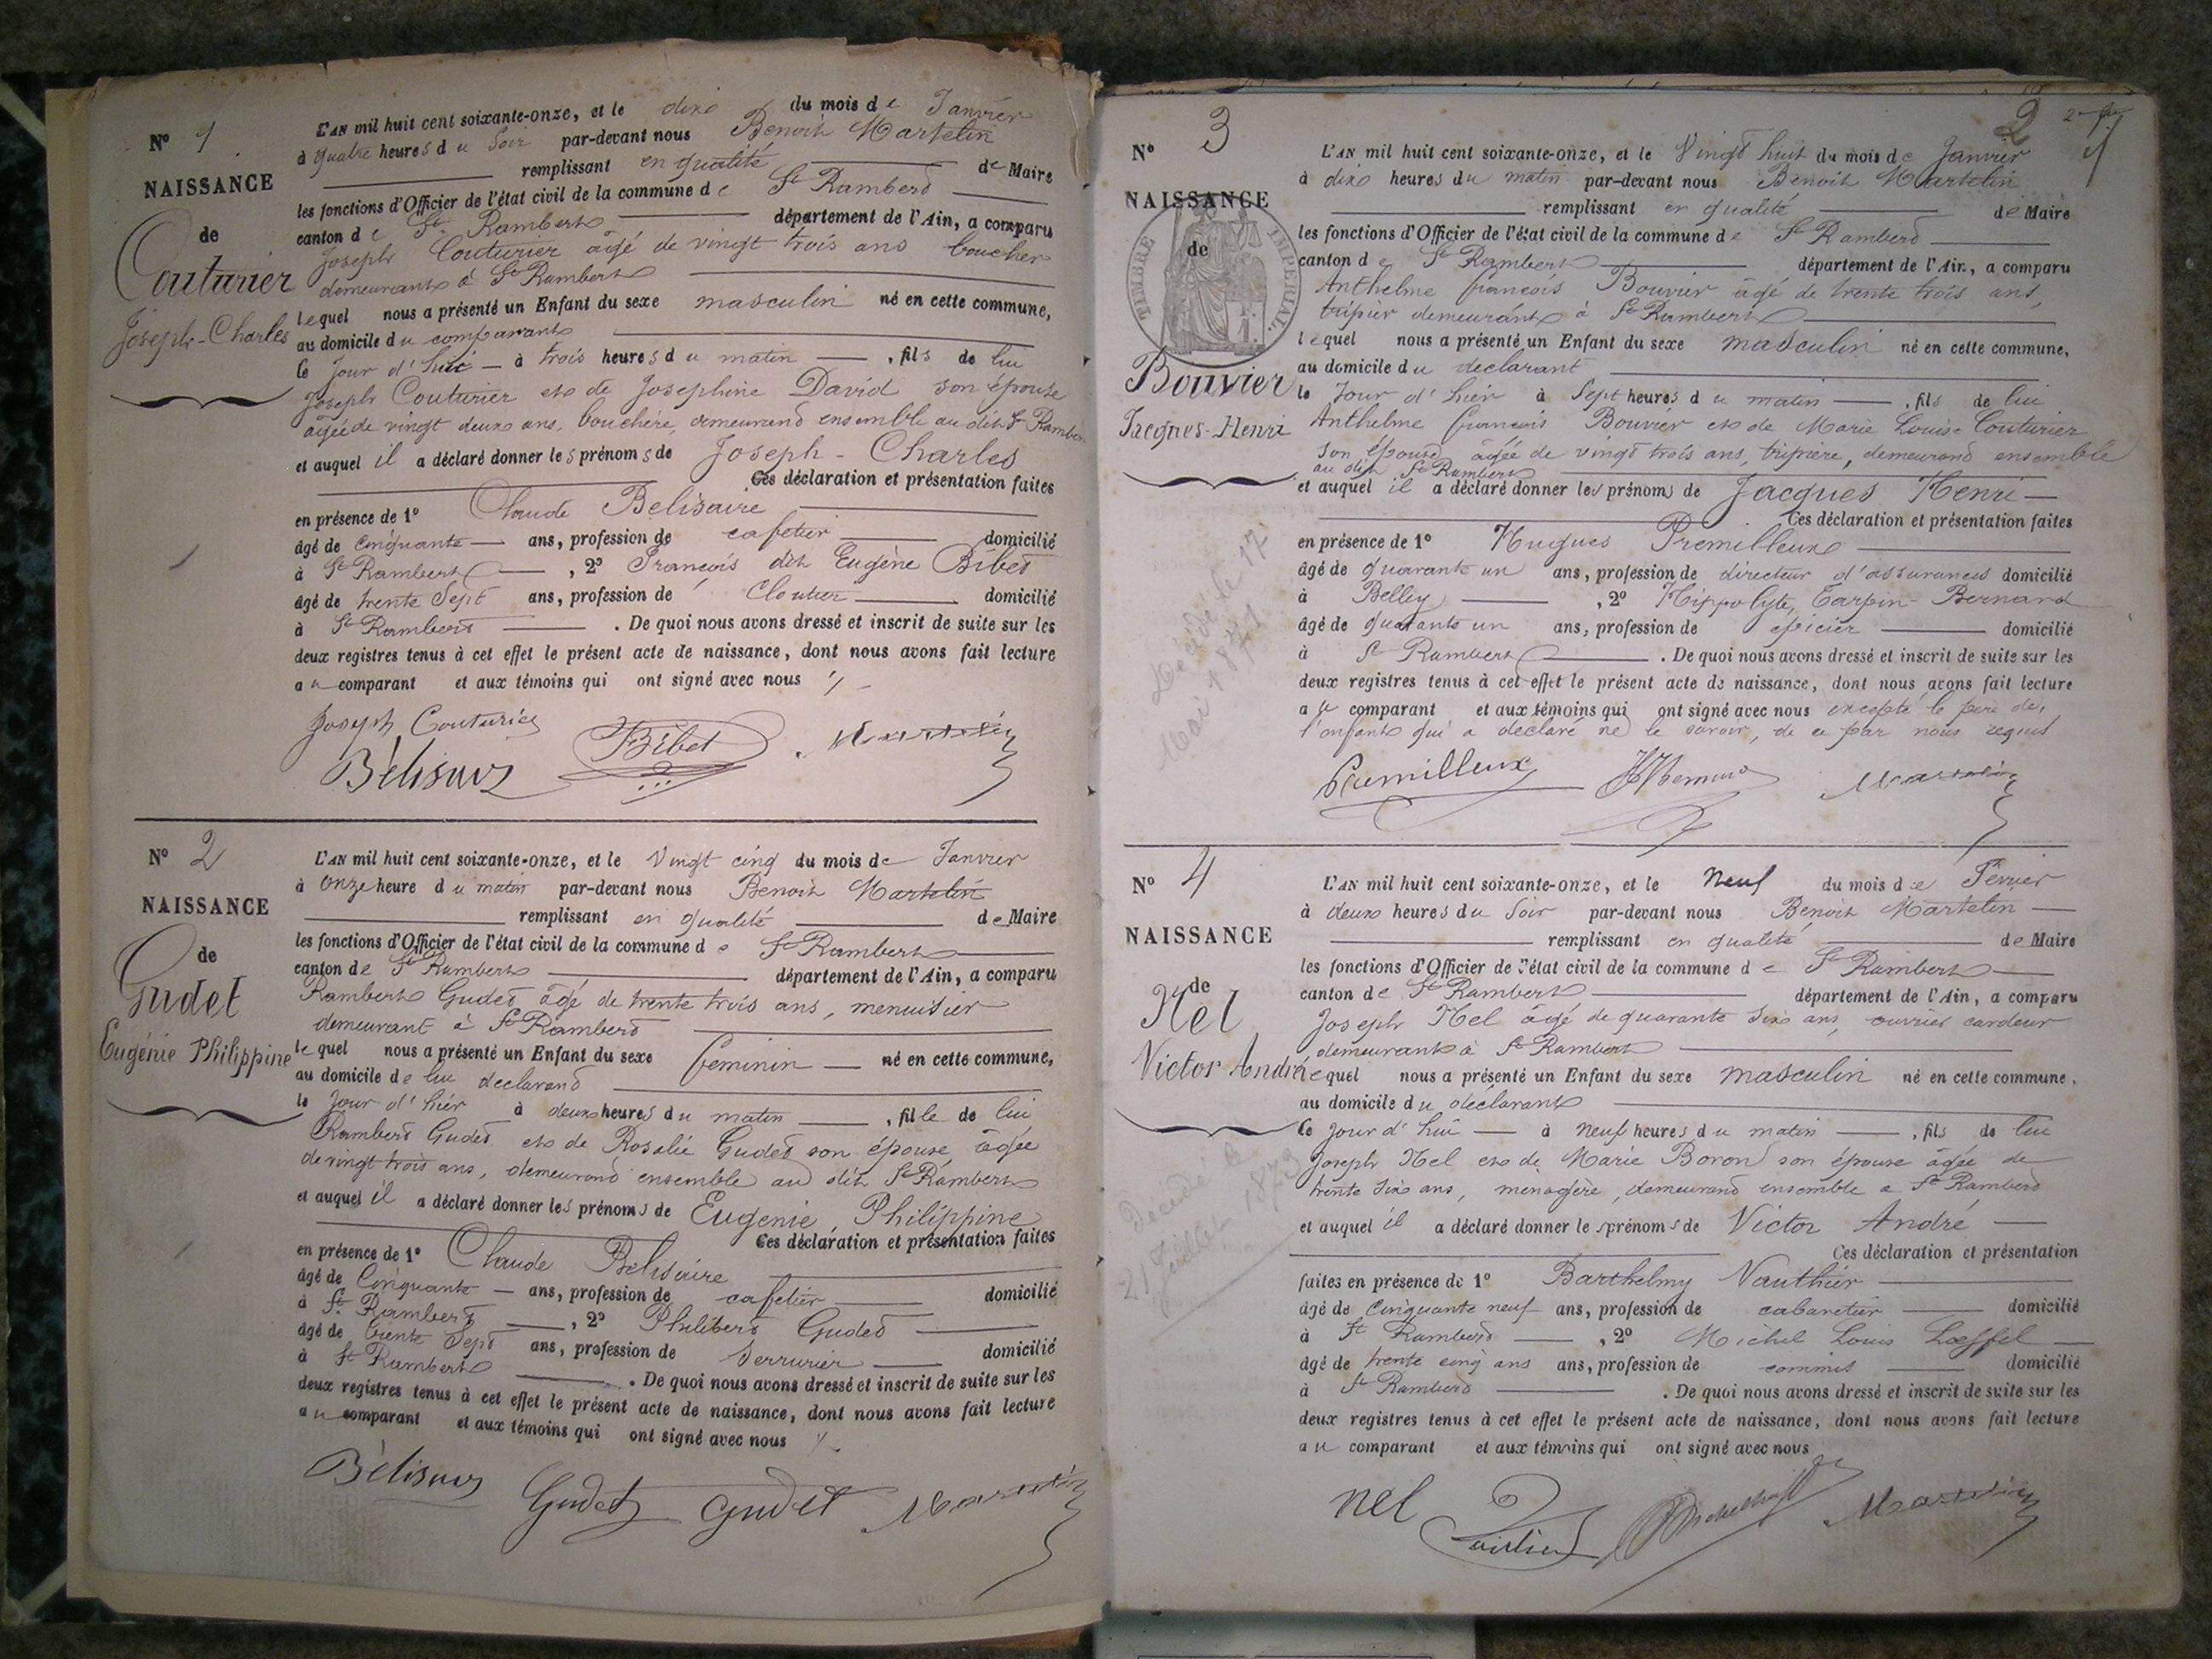 N° 1
NAISSANCE
de
Couturier
Joseph-Charles
L'AN mil huit cent soixante-onze, et le dixe du mois de Janvier
à quatre heures du Soir par-devant nous Benoit Martelin
remplissant en qualité de Maire
les fonctions d'Officier de l'état civil de la commune de St Rambert
canton de St Rambert département de l'Ain, a comparu
Joseph Couturier âgé de vingt trois ans boucher
demeurant à St Rambert
lequel nous a présenté un Enfant du sexe masculin né en cette commune,
au domicile du comparant
le Jour d'hui à trois heures du matin, fils de lui
Joseph Couturier et de Josephine David son épouse
âgée de vingt deux ans, bouchère, demeurant ensemble au dit St Rambert
et auquel il a déclaré donner les prénoms de Joseph-Charles
Ces déclaration et présentation faites
en présence de 1° Claude Belisaire
âgé de cinquante ans, profession de cafetier domicilié
à St Rambert, 2° François dit Eugène Bibet
âgé de trente Sept ans, profession de Cloutier domicilié
à St Rambert. De quoi nous avons dressé et inscrit de suite sur les
deux registres tenus à cet effet le présent acte de naissance, dont nous avons fait lecture
au comparant et aux témoins qui ont signé avec nous
Joseph Couturier
Bélisair Bibet Martelin
N° 2
NAISSANCE
de
Gudet
Eugénie Philippine
L'AN mil huit cent soixante-onze, et le Vingt cinq du mois de Janvier
à onze heure du matin par-devant nous Benoit Martelin
remplissant en qualité de Maire
les fonctions d'Officier de l'état civil de la commune de St Rambert
canton de St Rambert département de l'Ain, a comparu
Rambert Gudet âgé de trente trois ans, menuisier
demeurant à St Rambert
lequel nous a présenté un Enfant du sexe feminin né en cette commune,
au domicile de lui declarant
le Jour d'hier à deux heures du matin, fille de lui
Rambert Gudet et de Rosalie Gudet son épouse, âgée
de vingt trois ans, demeurant ensemble au dit St Rambert
et auquel il a déclaré donner les prénoms de Eugenie, Philippine
Ces déclaration et présentation faites
en présence de 1° Claude Belisaire
âgé de Cinquante ans, profession de cafetier domicilié
à St Rambert, 2° Philibert Gudet
âgé de trente Sept ans, profession de Serrurier domicilié
à St Rambert. De quoi nous avons dressé et inscrit de suite sur les
deux registres tenus à cet effet le présent acte de naissance, dont nous avons fait lecture
au comparant et aux témoins qui ont signé avec nous
Bélisair Gudet Gudet Martelin
2
N° 3
NAISSANCE
de
TIMBRE IMPERIAL.
Bouvier
Jacques-Henri
Décédé le 17
Mai 1871
L'AN mil huit cent soixante-onze, et le Vingt huit du mois de Janvier
à dixe heures du matin par-devant nous Benoit Martelin
remplissant en qualité de Maire
les fonctions d'Officier de l'état civil de la commune de St Rambert
canton de St Rambert département de l'Ain, a comparu
Anthelme françois Bouvier âgé de trente trois ans,
tripier demeurant à St Rambert
lequel nous a présenté un Enfant du sexe masculin né en cette commune,
au domicile du declarant
le Jour d'hier à Sept heures du matin, fils de lui
Anthelme françois Bouvier et de Marie Louise Couturier
son épouse âgée de vingt trois ans, tripière, demeurant ensemble
au dit St Rambert
et auquel il a déclaré donner les prénoms de Jacques Henri
Ces déclaration et présentation faites
en présence de 1° Hugues Premilleux
âgé de quarante un ans, profession de directeur d'assurances domicilié
à Belley, 2° Hippolyte, Tarpin-Bernard
âgé de quarante un ans, profession de épicier domicilié
à St Rambert. De quoi nous avons dressé et inscrit de suite sur les
deux registres tenus à cet effet le présent acte de naissance, dont nous avons fait lecture
au comparant et aux témoins qui ont signé avec nous excepté le père de
l'enfant qui a déclaré ne le savoir, de ce par nous requis
Premilleux Martelin
N° 4
NAISSANCE
de
Nel
Victor André
Décédé le
21 Juillet 1873
L'AN mil huit cent soixante-onze, et le Neuf du mois de Février
à deux heures du Soir par-devant nous Benoit Martelin
remplissant en qualité de Maire
les fonctions d'Officier de l'état civil de la commune de St Rambert
canton de St Rambert département de l'Ain, a comparu
Joseph Nel âgé de quarante six ans, ouvrier cardeur
demeurant à St Rambert
lequel nous a présenté un Enfant du sexe masculin né en cette commune.
au domicile du déclarant
le jour d'hui à neuf heures du matin, fils de lui
Joseph Nel et de Marie Boron son épouse âgée de
trente six ans, menagère, demeurant ensemble a St Rambert
et auquel il a déclaré donner les prénoms de Victor André
Ces déclaration et présentation
faites en présence de 1° Barthelmy Vauthier
âgé de Cinquante neuf ans, profession de cabaretier domicilié
à St Rambert, 2° Michel Louis Loeffel
âgé de trente cinq ans ans, profession de commis domicilié
à St Rambert. De quoi nous avons dressé et inscrit de suite sur les
deux registres tenus à cet effet le présent acte de naissance, dont nous avons fait lecture
au comparant et aux témoins qui ont signé avec nous
nel Martelin